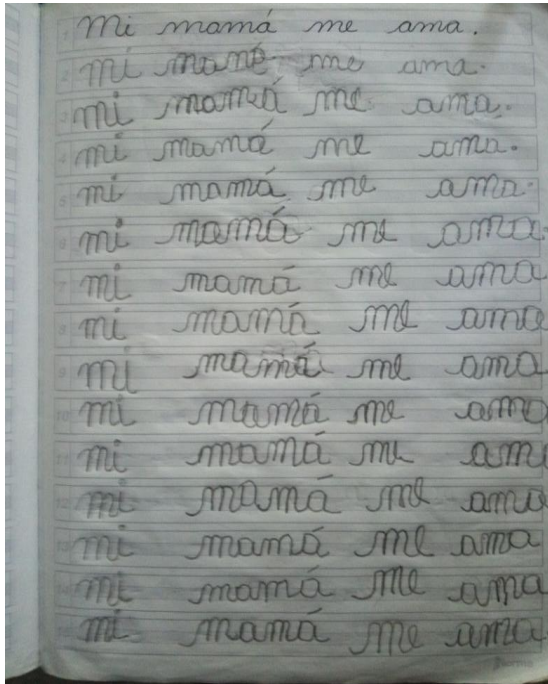 1 Mi mamá me ama.
2 mi mamé me ama.
3 mi mamá me amá.
4 mi mamá me ama.
5 mi mamá me ama.
6 mi mamá me ama.
7 mi mamá me ama
8 mi mamá me ama
9 mi mamá me ama
10 mi mamá me ama
11 mi mamá me am
12 mi mamá me ama
13 mi mamá me ama
14 mi mamá me ama
15 mi mamá me ama